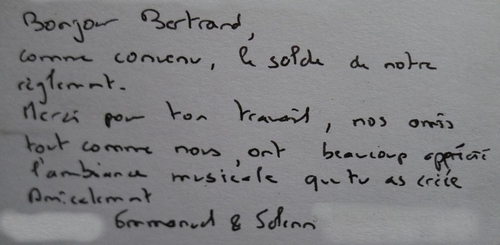 Bonjour Bertrand,
comme convenu, le solde de notre
règlement.
Merci pour ton travail, nos amis
tout comme nous, ont beaucoup apprécié
l'ambiance musicale que tu as créée
Amicalement
Emmanuel & Solenn